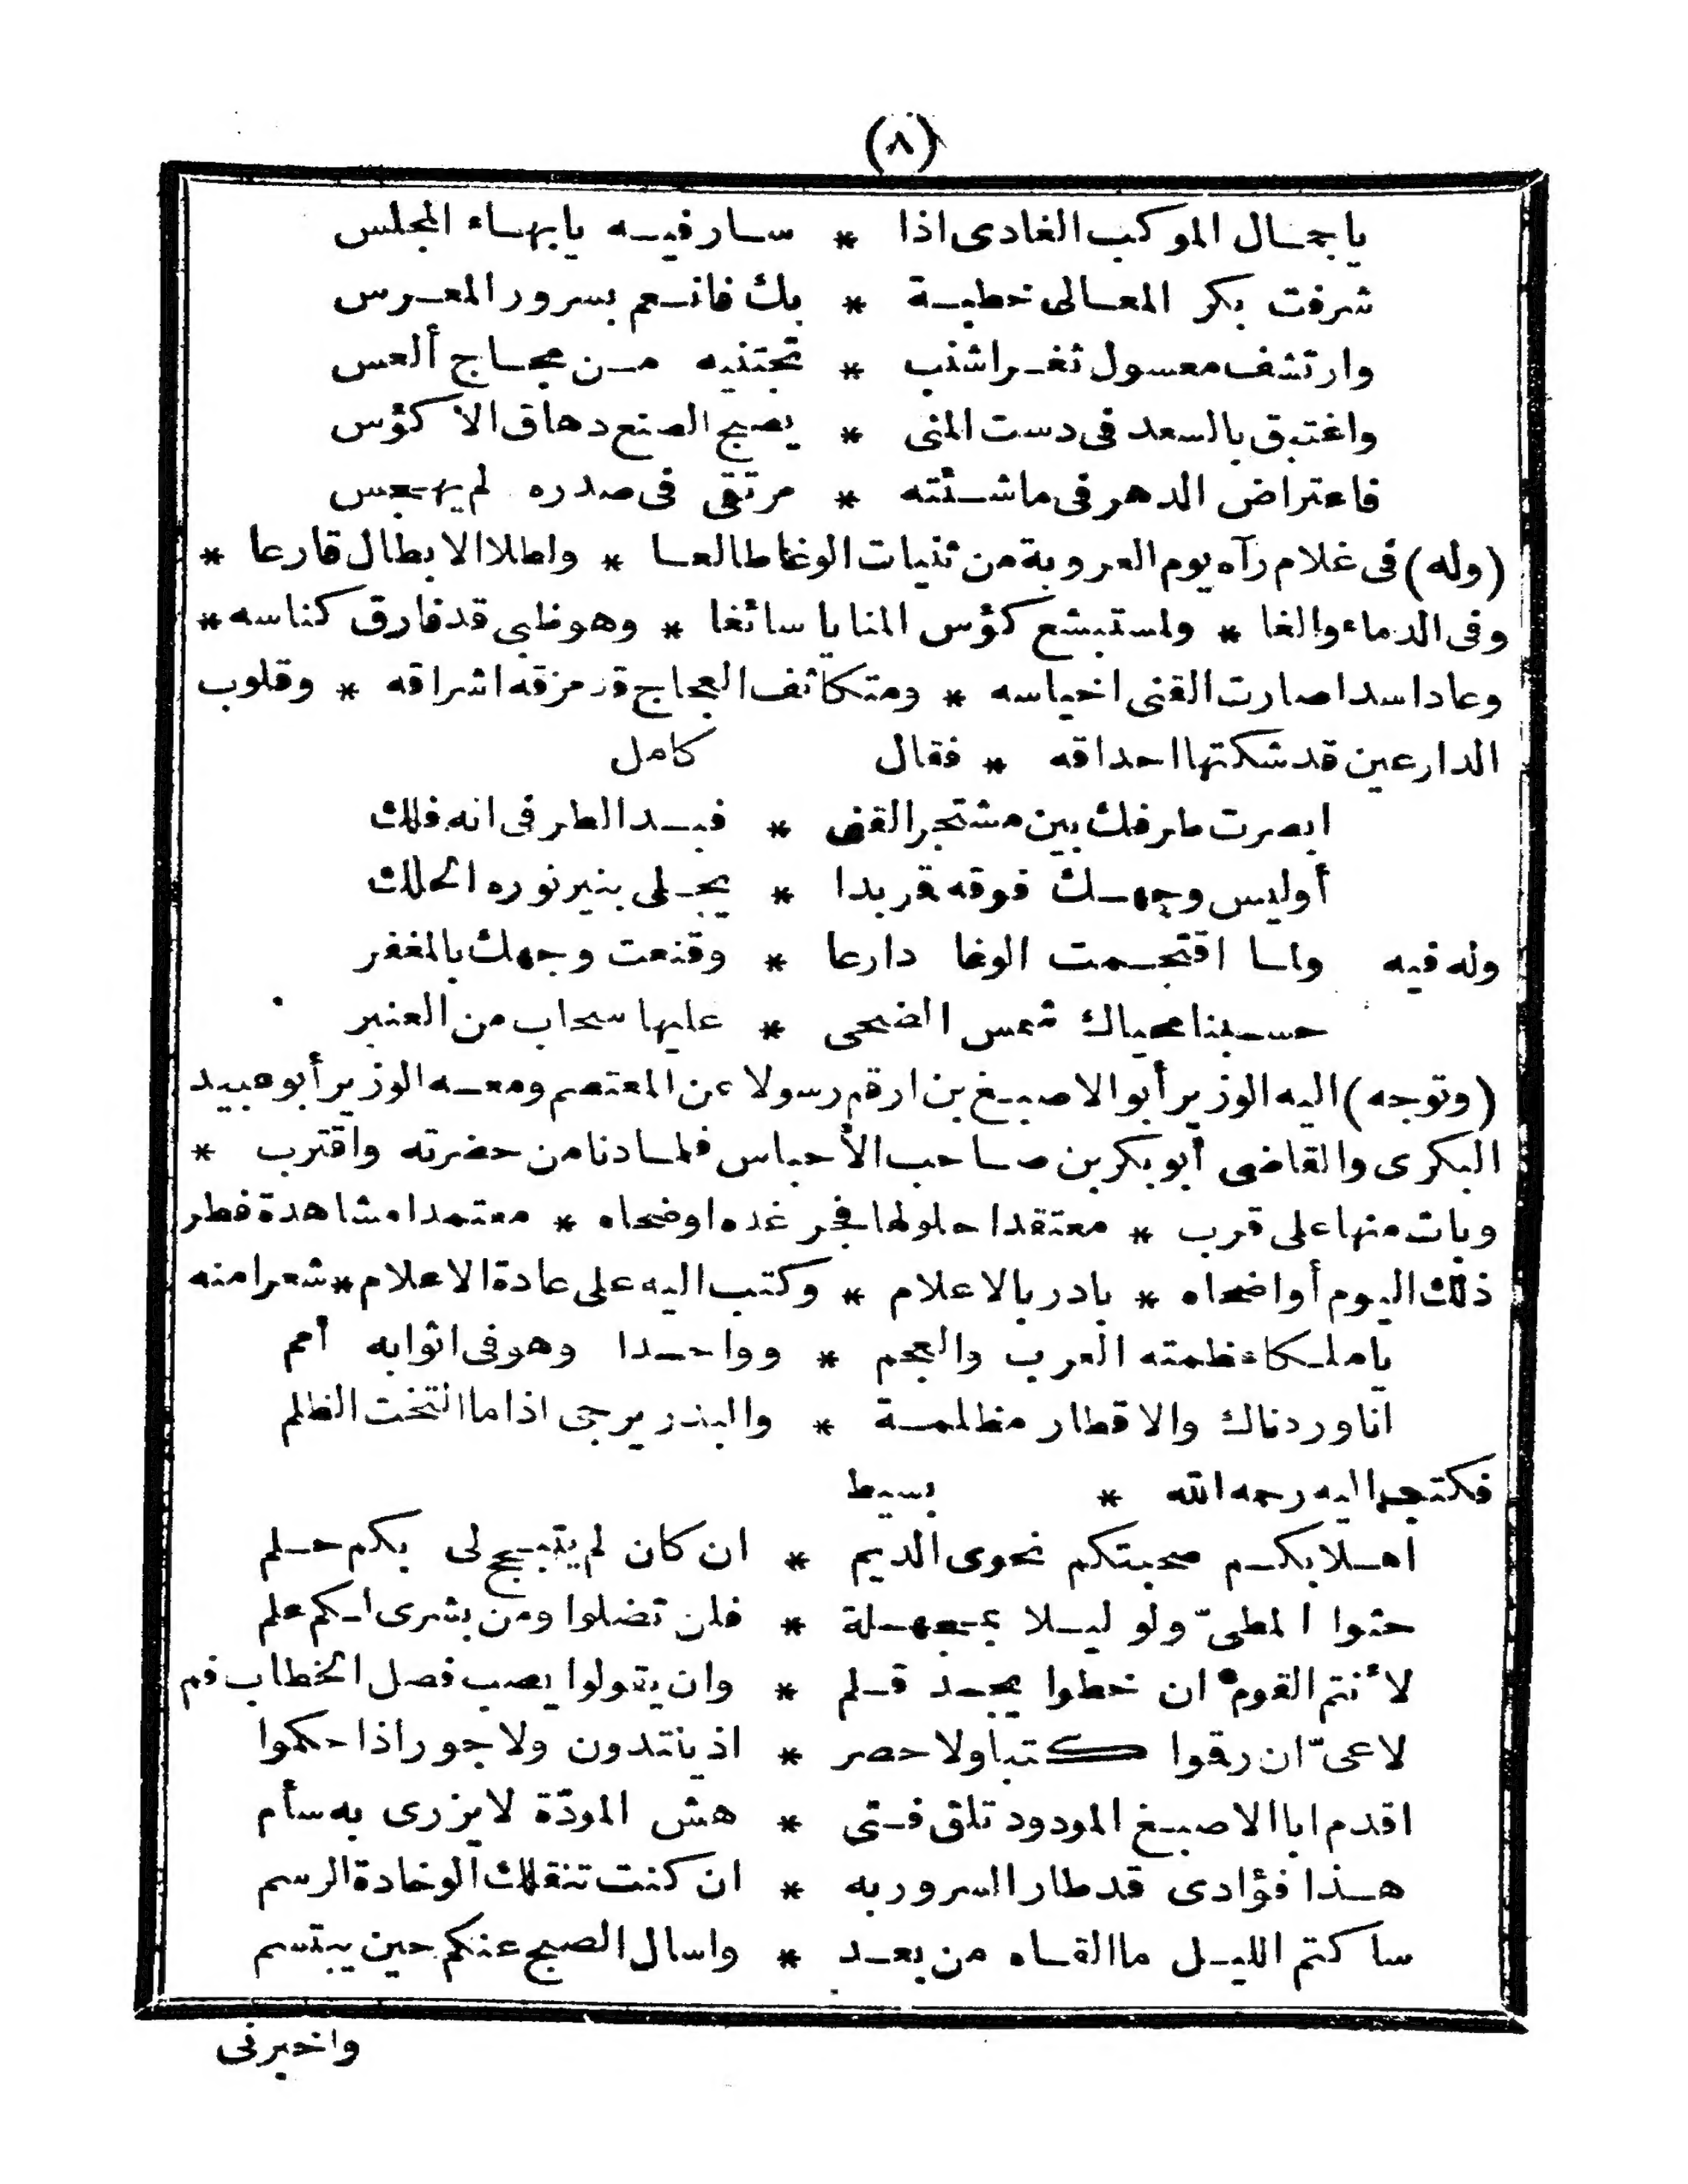 (٨)
ياجمال الموكب الغادى اذا * سار فيه يابهاء المجلس
شرفت بكر المعالى خطبة * بك فانعم بسرور المعرس
وارتشف معسول ثغر اشنب * تجتنيه من مجاج ألعس
واغتبق بالسعد فى دست المنى * يصبح الصنع دهاق الاكؤس
فاعتراض الدهر فى ماشئته * مرتقى فى صدره لم يهجس
(وله) فى غلام رآه يوم العروبة من ثنيات الوغا طالعا * ولطلا الابطال قارعا *
وفى الدماء والغا * ولمستبشع كؤس المنايا سائغا * وهو ظبى قد فارق كناسه *
وعاد اسدا صارت القنى اخياسه * ومتكاثف العجاج قد مزقه اشراقه * وقلوب
الدارعين قد شكتها احداقه * فقال كامل
ابصرت طرفك بين مشتجر القنى * فبدا لطرفى انه فلك
أوليس وجهك فوقه قربدا * يجلى بنير نوره الحلك
وله فيه ولما اقتحمت الوغا دارعا * وقنعت وجهك بالمغفر
حسبنا محياك شمس الضحى * عليها سحاب من العنبر
(وتوجه) اليه الوزير أبو الاصبغ بن ارقم رسولا عن المعتصم ومعه الوزير أبو عبيد
البكرى والقاضى أبو بكر بن صاحب الأحباس فلما دنا من حضرته واقترب *
وبات منها على قرب * معتقدا حلولها فجر غده اوضحاه * معتمدا مشاهدة فطر
ذلك اليوم أو اضحاه * بادر بالاعلام * وكتب اليه على عادة الاعلام * شعرا منه
ياملكا عظمته العرب والعجم * وواحدا وهو فى اثوابه أمم
انا وردناك والاقطار مظلمة * والبدر يرجى اذا ما التخت الظلم
فكتب اليه رحمه الله * بسيط
اهلا بكم صحبتكم نحوى الديم * ان كان لم يتبج لى بكم حلم
حثوا المطىّ ولو ليلا بمجهلة * فلن تضلوا ومن بشرى لكم علم
لأنتم القوم ان خطوا يجد قلم * وان يقولوا يصب فصل الخطاب فم
لاعىّ ان رقوا كتبا ولا حصر * اذ ينتدون ولا جور اذا حكموا
اقدم ابا الاصبغ المودود تلق فتى * هش المودّة لا يزرى به سأم
هذا فؤادى قد طار السرور به * ان كنت تنقلك الوخادة الرسم
ساكتم الليل ما القاه من بعد * واسال الصبح عنكم حين يبتسم
واخبرنى